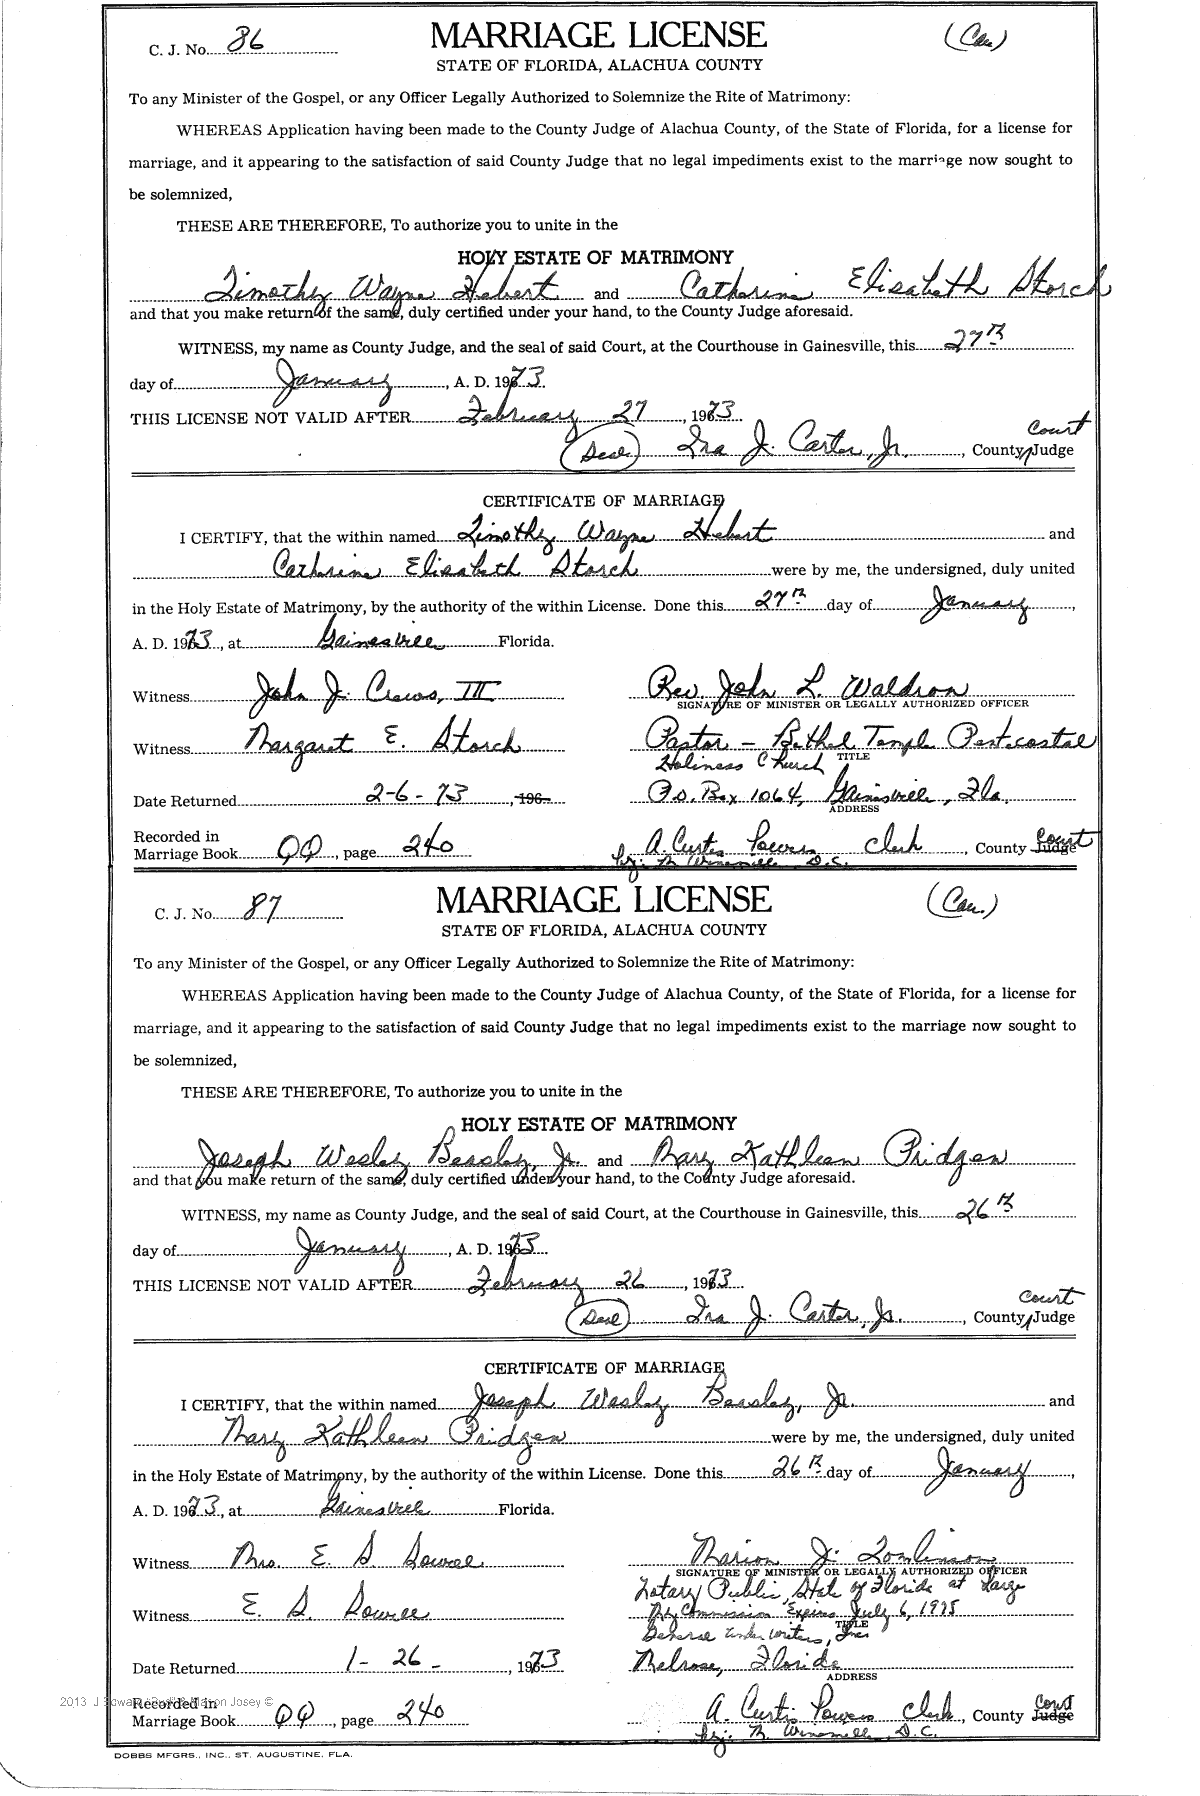 C. J. No. 86 MARRIAGE LICENSE (Cau)
STATE OF FLORIDA, ALACHUA COUNTY
To any Minister of the Gospel, or any Officer Legally Authorized to Solemnize the Rite of Matrimony:
WHEREAS Application having been made to the County Judge of Alachua County, of the State of Florida, for a license for
marriage, and it appearing to the satisfaction of said County Judge that no legal impediments exist to the marriage now sought to
be solemnized,
THESE ARE THEREFORE, To authorize you to unite in the
HOLY ESTATE OF MATRIMONY
Timothy Wayne Hebert and Catherine Elisabeth Storch
and that you make return of the same, duly certified under your hand, to the County Judge aforesaid.
WITNESS, my name as County Judge, and the seal of said Court, at the Courthouse in Gainesville, this 27th
day of January, A. D. 1973.
THIS LICENSE NOT VALID AFTER February 27, 1973
(Seal) Ira J. Carter, Jr., County Court Judge
CERTIFICATE OF MARRIAGE
I CERTIFY, that the within named Timothy Wayne Hebert and
Catherine Elisabeth Storch were by me, the undersigned, duly united
in the Holy Estate of Matrimony, by the authority of the within License. Done this 27th day of January,
A. D. 1973, at Gainesville Florida.
Witness John J. Crews, III Rev. John L. Waldron
SIGNATURE OF MINISTER OR LEGALLY AUTHORIZED OFFICER
Witness Margaret E. Storch Pastor - Bethel Temple Pentecostal
Holiness Church TITLE
Date Returned 2-6-73, 196 P.O. Box 1064, Gainesville, Fla.
ADDRESS
Recorded in
Marriage Book QQ, page 240 A. Curtis Powers Clerk, County Judge Court
by: M. Winsmill D.C.
C. J. No. 87 MARRIAGE LICENSE (Cau.)
STATE OF FLORIDA, ALACHUA COUNTY
To any Minister of the Gospel, or any Officer Legally Authorized to Solemnize the Rite of Matrimony:
WHEREAS Application having been made to the County Judge of Alachua County, of the State of Florida, for a license for
marriage, and it appearing to the satisfaction of said County Judge that no legal impediments exist to the marriage now sought to
be solemnized,
THESE ARE THEREFORE, To authorize you to unite in the
HOLY ESTATE OF MATRIMONY
Joseph Wesley Beasley, Jr. and Mary Kathleen Pridgen
and that you make return of the same, duly certified under your hand, to the County Judge aforesaid.
WITNESS, my name as County Judge, and the seal of said Court, at the Courthouse in Gainesville, this 26th
day of January, A. D. 1973.
THIS LICENSE NOT VALID AFTER February 26, 1973
(Seal) Ira J. Carter, Jr., County Court Judge
CERTIFICATE OF MARRIAGE
I CERTIFY, that the within named Joseph Wesley Beasley, Jr. and
Mary Kathleen Pridgen were by me, the undersigned, duly united
in the Holy Estate of Matrimony, by the authority of the within License. Done this 26th day of January,
A. D. 1973, at Gainesville Florida.
Witness Mrs. E. S. Sowell Marion J. Tomlinson
SIGNATURE OF MINISTER OR LEGALLY AUTHORIZED OFFICER
Notary Public, State of Florida at Large
Witness E. S. Sowell My Commission Expires July 6, 1975
General Underwriters, Inc. TITLE
Date Returned 1-26-, 1973 Melrose, Florida
ADDRESS
2013 J Edward Marion Josey ©
Recorded in
Marriage Book QQ, page 240 A. Curtis Powers Clerk, County Judge Court
by: M. Winsmill, D.C.
DOBBS MFGRS., INC., ST. AUGUSTINE, FLA.